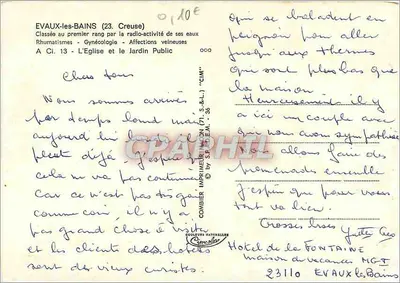 0,10€
EVAUX-les-BAINS (23. Creuse)
Classée au premier rang par la radio-activité de ses eaux
Rhumatismes - Gynécologie - Affections veineuses
A Ci. 13 - L'Eglise et le Jardin Public
Chers tous
Nous sommes arrivés
par temps lourd mais
aujourd'hui
pleut déjà j'espère que
cela ne va pas continuer
Car ce n'est pas tros gai
comme coin. il n'y a
pas grand chose à visiter
et les clients des hotels
sont des vieux curistes.
COMBIER IMPRIMEUR MACON (71, S.-&-L.) "CIM"
by S.P.A.D.E.M. - 36
COULEURS NATURELLES
qui se baladent en
peignoir pour aller
jusqu'aux thermes
qui sont plus bas que
la maison
Heureusement il y
a ici un couple avec
qui nous avons sympathisé
nous allons faire des
promenades ensemble
j'espère que pour vous
tout va bien.
Grosses bises
Hotel de la FONTAINE
maison de vacances MGT
23110 EVAUX les Bains
CPAPHIL